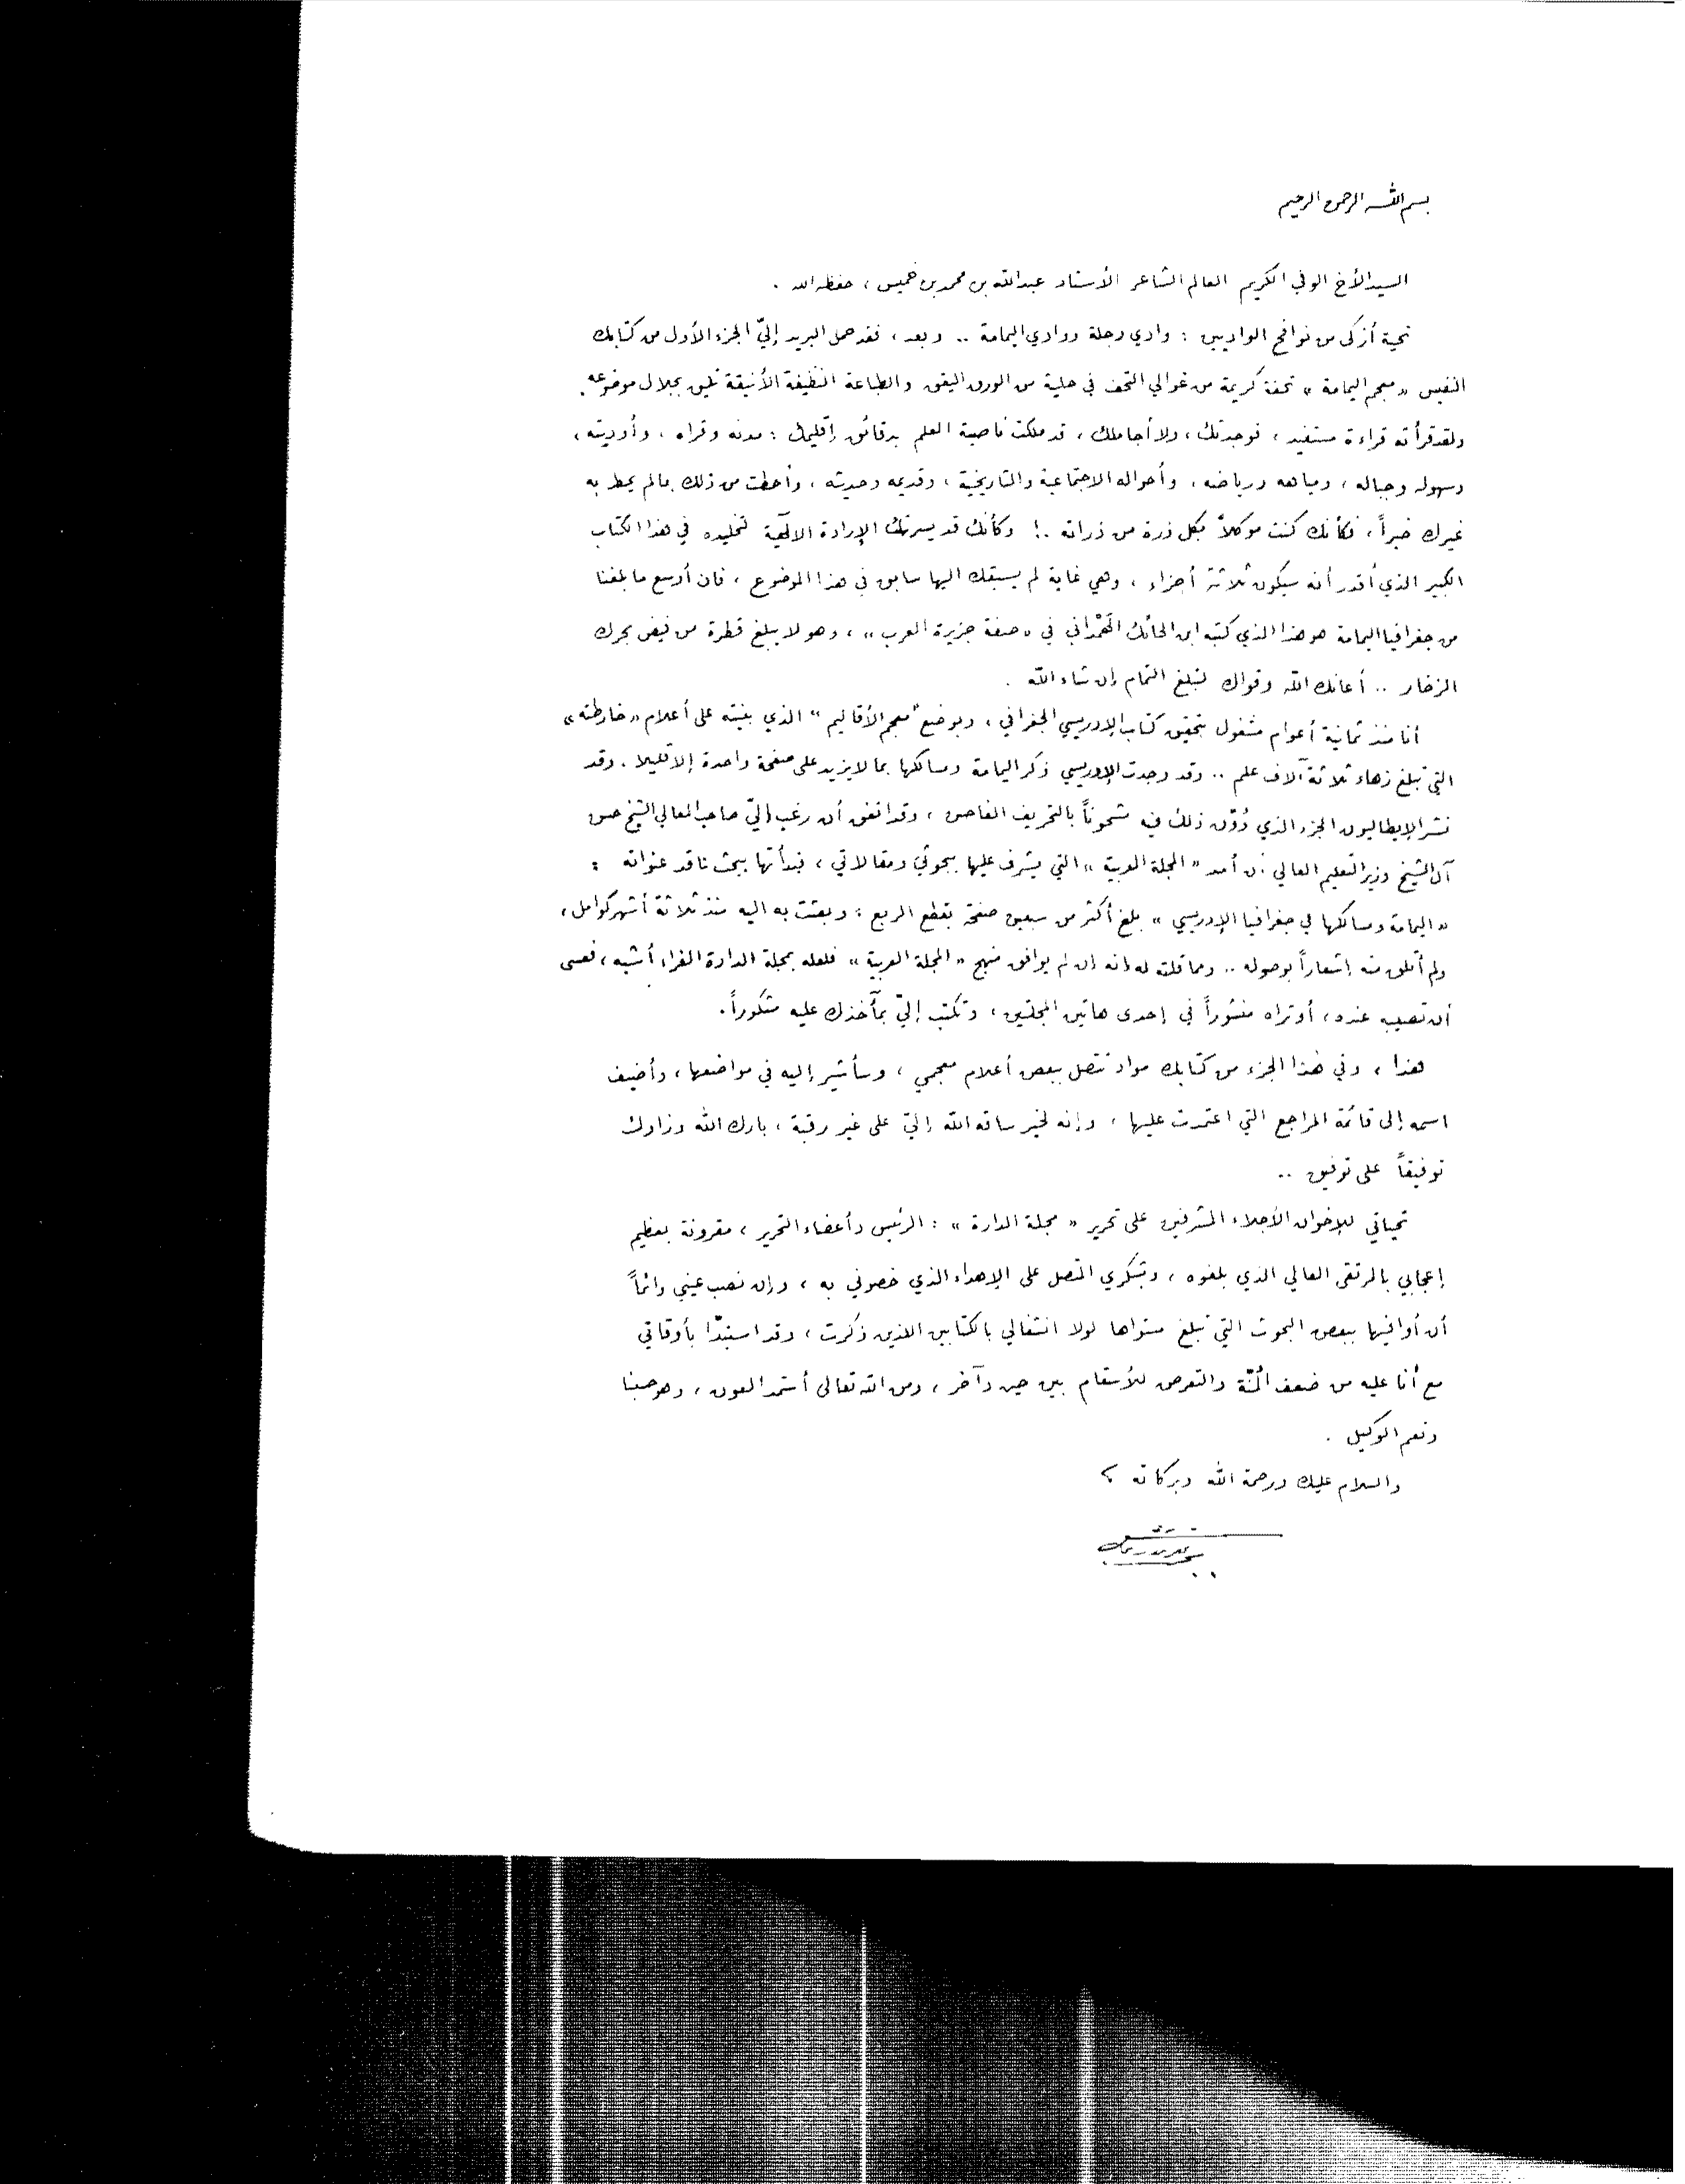 بسم الله الرحمن الرحيم
السيد الأخ الوفي الكريم العالم الشاعر الأستاذ عبدالله بن محمد بن خميس ، حفظه الله .
تحية أزكى من نوافح الواديين : وادي دجلة ووادي اليمامة .. وبعد ، فقد حمل البريد إليّ الجزء الأول من كتابك
النفيس « معجم اليمامة » تحفة كريمة من غوالي التحف في حلية من الورق اليقق والطباعة النظيفة الأنيقة تليق بجلال موضوعه .
ولقد قرأته قراءة مستفيد ، فوجدتك ، ولا أجاملك ، قد ملكت ناصية العلم بدقائق إقليمك : مدنه وقراه ، وأوديته ،
وسهوله وجباله ، ومياهه ورياضه ، وأحواله الاجتماعية والتاريخية ، وقديمه وحديثه ، وأحطت من ذلك بمالم يحط به
غيرك خبراً ، فكأنك كنت موكلاً بكل ذرة من ذراته ..! وكأنك قد يسرتك الإرادة الالٓهية لتخليده في هذا الكتاب
الكبير الذي أقدر أنه سيكون ثلاثة أجزاء ، وهي غاية لم يسبقك اليها سابق في هذا الموضوع ، فان أوسع ما بلغنا
من جغرافيا اليمامة هو هذا الذي كتبه ابن الحائك الهَمْداني في « صفة جزيرة العرب » ، وهو لا يبلغ قطرة من فيض بحرك
الزخار .. أعانك الله وقواك لتبلغ التمام إن شاء الله .
أنا منذ ثمانية أعوام مشغول بتحقيق كتاب الإدريسي الجغرافي ، وبوضع " معجم الأقاليم " الذي بنيته على أعلام « خارطته »
التي تبلغ زهاء ثلاثة آلاف علم .. وقد وجدت الإدريسي ذكر اليمامة ومسالكها بما لا يزيد على صفحة واحدة إلا قليلا . وقد
نشر الإيطاليون الجزء الذي دُوّن ذلك فيه مشحوناً بالتحريف الفاحش ، وقد اتفق أن رغب إليّ صاحب المعالي الشيخ حسن
آل الشيخ وزير التعليم العالي أن أمد « المجلة العربية » التي يشرف عليها ببحوثي ومقالاتي ، فبدأتها ببحث ناقد عنوانه :
« اليمامة ومسالكها في جغرافيا الإدريسي » بلغ أكثر من سبعين صفحة بقطع الربع ؛ وبعثت به اليه منذ ثلاثة أشهر كوامل ،
ولم أتلق منه إشعاراً بوصوله .. ومما قلته له إنه إن لم يوافق منهج « المجلة العربية » فلعله بمجلة الدارة الغراء أشبه ، فعسى
أن تصيبه عنده ، أو تراه منشوراً في إحدى هاتين المجلتين ، وتكتب إليّ بمآخذك عليه مشكوراً .
هذا ، وفي هذا الجزء من كتابك مواد تتصل ببعض أعلام معجمي ، وسأشير إليه في مواضعها ، وأضيف
اسمه إلى قائمة المراجع التي اعتمدت عليها ، وإنه لخير ساقه الله إليّ على غير رقبة ، بارك الله وزادك
توفيقاً على توفيق ..
تحياتي للإخوان الأجلاء المشرفين على تحرير « مجلة الدارة » : الرئيس وأعضاء التحرير ، مقرونة بعظيم
إعجابي بالمرتقى العالي الذي بلغوه ، وبشكري المتصل على الإهداء الذي خصوني به ، وإن نصب عيني دائماً
أن أوافيها ببعض البحوث التي تبلغ مستواها لولا انشغالي بالكتابين اللذين ذكرت ، وقد استبدّا بأوقاتي
مع أنا عليه من ضعف المُنّة والتعرض للأسقام بين حين وآخر ، ومن الله تعالى أستمد العون ، وهو حسبنا
ونعم الوكيل .
والسلام عليك ورحمة الله وبركاته